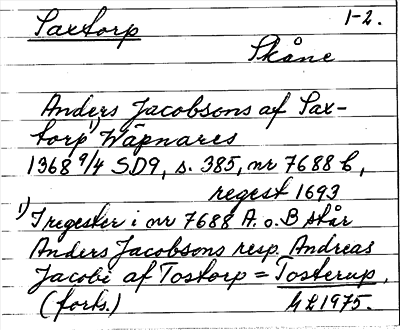 Saxtorp 1-2.
Skåne
Anders Jacobsons af Sax-
torp¹⁾ Wäpnares
1368 9/4 SD9, s. 385, nr 7688 b,
regest 1693
¹⁾ I regester i nr 7688 A. o. B står
Anders Jacobsons resp. Andreas
Jacobi af Tostorp = Tosterup.
(forts.) 1975.